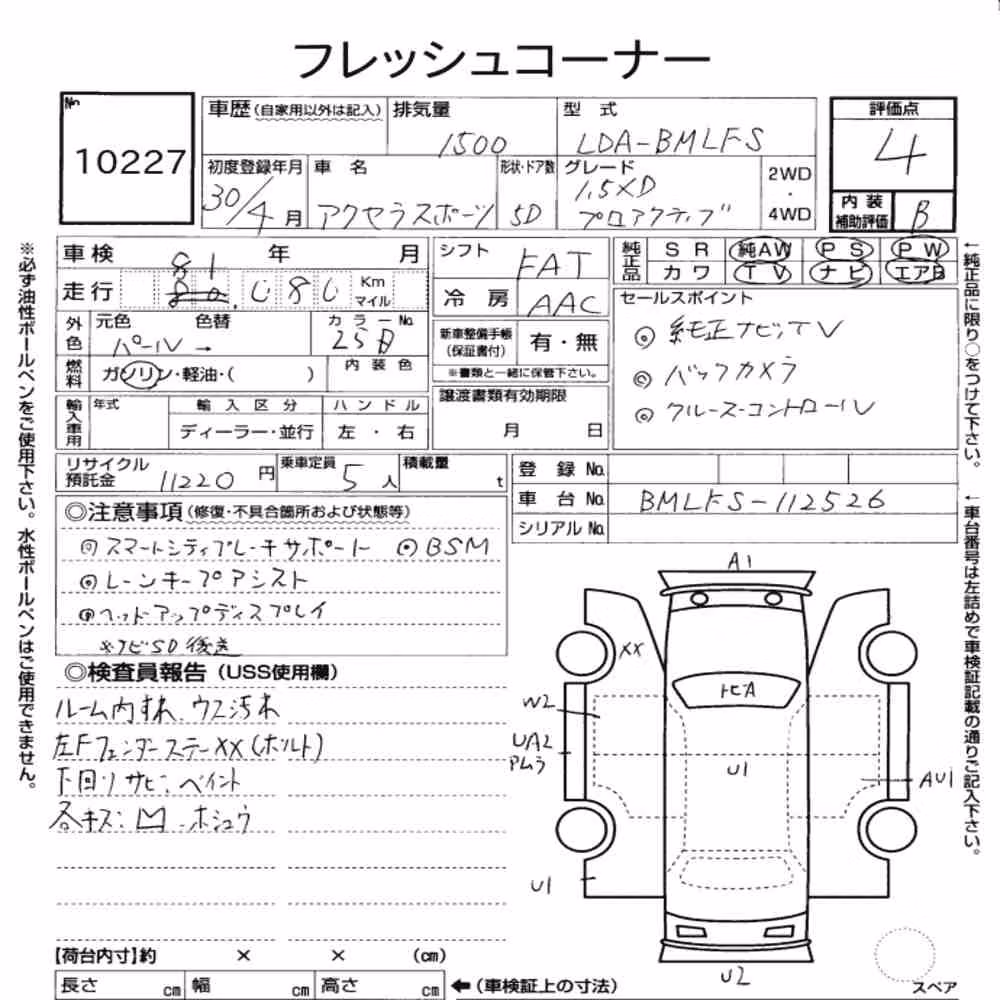 フレッシュコーナー
No.
10227
車歴(自家用以外は記入)
排気量
1500
型式
LDA-BMLFS
評価点
4
初度登録年月
30/4月
車名
アクセラスポーツ
形状・ドア数
5D
グレード
1.5XD
プロアクティブ
2WD
・
4WD
内装
補助評価
B
※必ず油性ボールペンをご使用下さい。水性ボールペンはご使用できません。
車検 年 月
81
走行 80.080 Km
マイル
シフト
FAT
冷房
AAC
純正品
SR 純AW PS PW
カワ TV ナビ エアB
←純正品に限り○をつけて下さい。
外色
元色 色替
パール→
カラーNo.
25D
燃料
ガソリン・軽油・( )
内装色
新車整備手帳
(保証書付)
有・無
※書類と一緒に保管下さい。
セールスポイント
◎ 純正ナビTV
◎ バックカメラ
◎ クルーズコントロール
輸入車用
年式
輸入区分
ディーラー・並行
ハンドル
左・右
譲渡書類有効期限
月 日
リサイクル
預託金
11220円
乗車定員
5人
積載量
t
登録No.
車台No. BMLFS-112526
シリアルNo.
←車台番号は左詰めで車検証記載の通りご記入下さい。
◎注意事項(修復・不具合箇所および状態等)
◎スマートシティブレーキサポート ◎BSM
◎レーンキープアシスト
◎ヘッドアップディスプレイ
※ナビSD後送
◎検査員報告(USS使用欄)
ルーム内すれ、ウス汚れ
左Fフェンダーステー XX(ボルト)
下回りサビ、ペイント
各キズ:凹、ホシュウ
A1
XX
トビA
W2
UA2
Pムラ
U1
AU1
U1
U2
スペア
【荷台内寸】約 × × (cm)
長さ cm 幅 cm 高さ cm
←(車検証上の寸法)